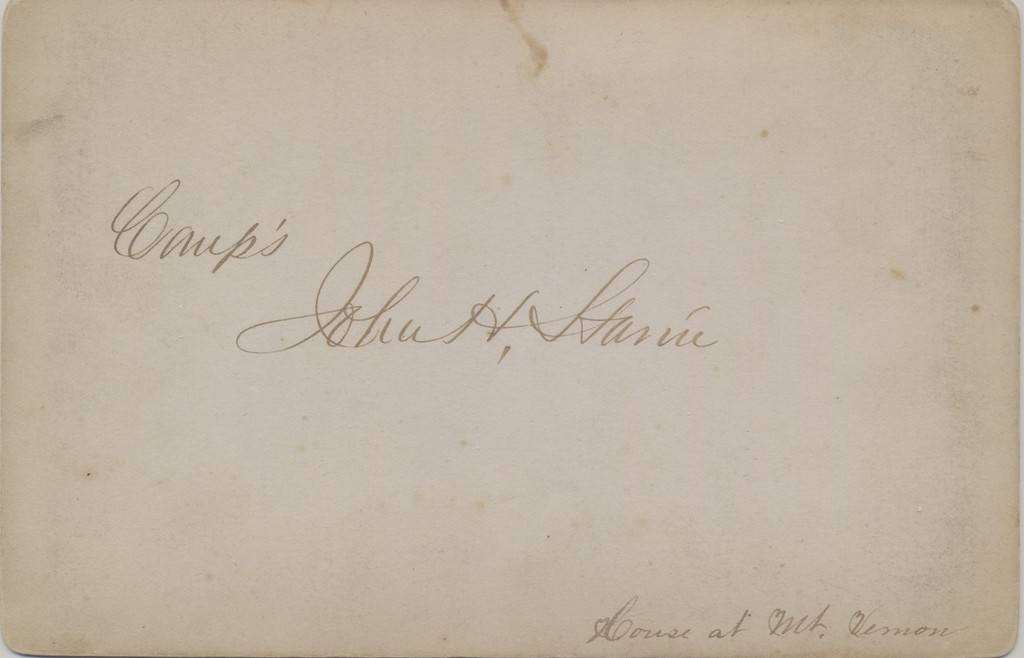 Camp's
John H. Starin
House at Mt. Vernon